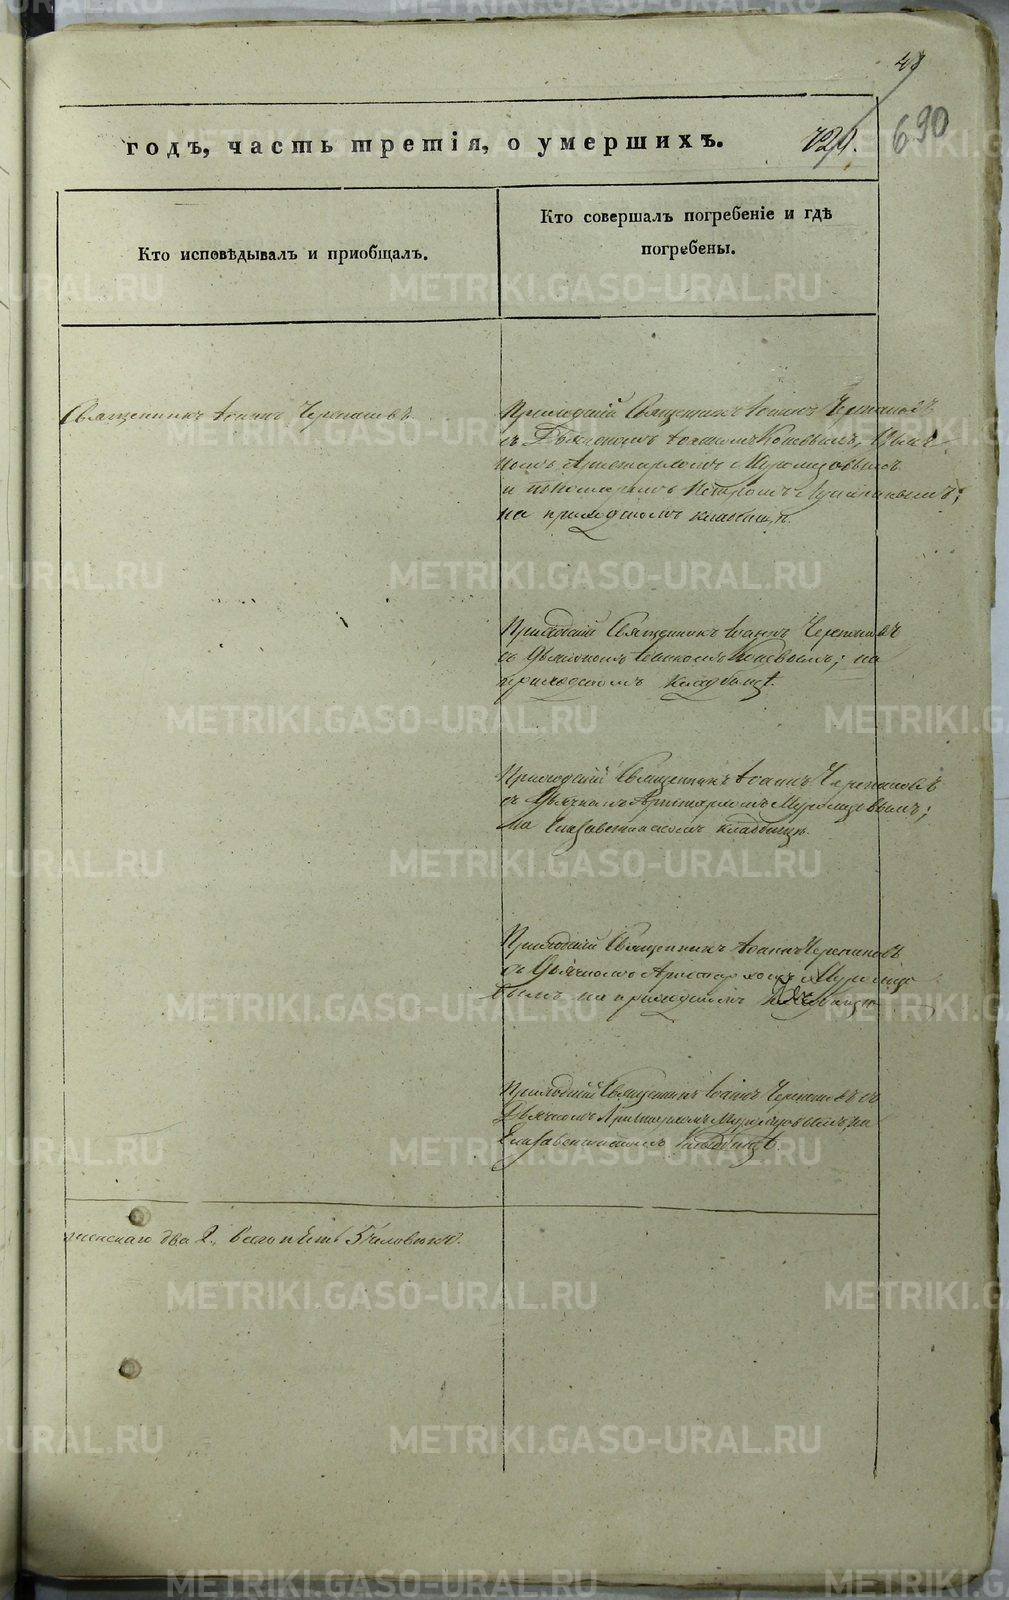 48
690
729.
годъ, часть третія, о умершихъ.
Кто исповѣдывалъ и приобщалъ.
Кто совершалъ погребеніе и гдѣ
погребены.
Священникъ Іоаннъ Черепановъ.
Приходскій Священникъ Іоаннъ Черепановъ
съ Діакономъ Іоанномъ Коневымъ, Дьяч
комъ Аристархомъ Муромцовымъ
и пономаремъ Петромъ
на приходскомъ кладбищѣ.
Приходскій Священникъ Іоаннъ Черепановъ
съ Діакономъ Іоанномъ Коневымъ; на
приходскомъ кладбищѣ.
Приходскій Священникъ Іоаннъ Черепановъ
съ Дьячкомъ Аристархомъ Муромцовымъ;
на Елизаветинскомъ кладбищѣ.
Приходскій Священникъ Іоаннъ Черепановъ
съ Дьячкомъ Аристархомъ Муромцо
вымъ на приходскомъ кладбищѣ
Приходскій Священникъ Іоаннъ Черепановъ съ
Дьячкомъ Аристархомъ Муромцовымъ, на
Елизаветинскомъ кладбищѣ.
женскаго два 2, Всего пять 5 человѣкъ.
METRIKI.GASO-URAL.RU